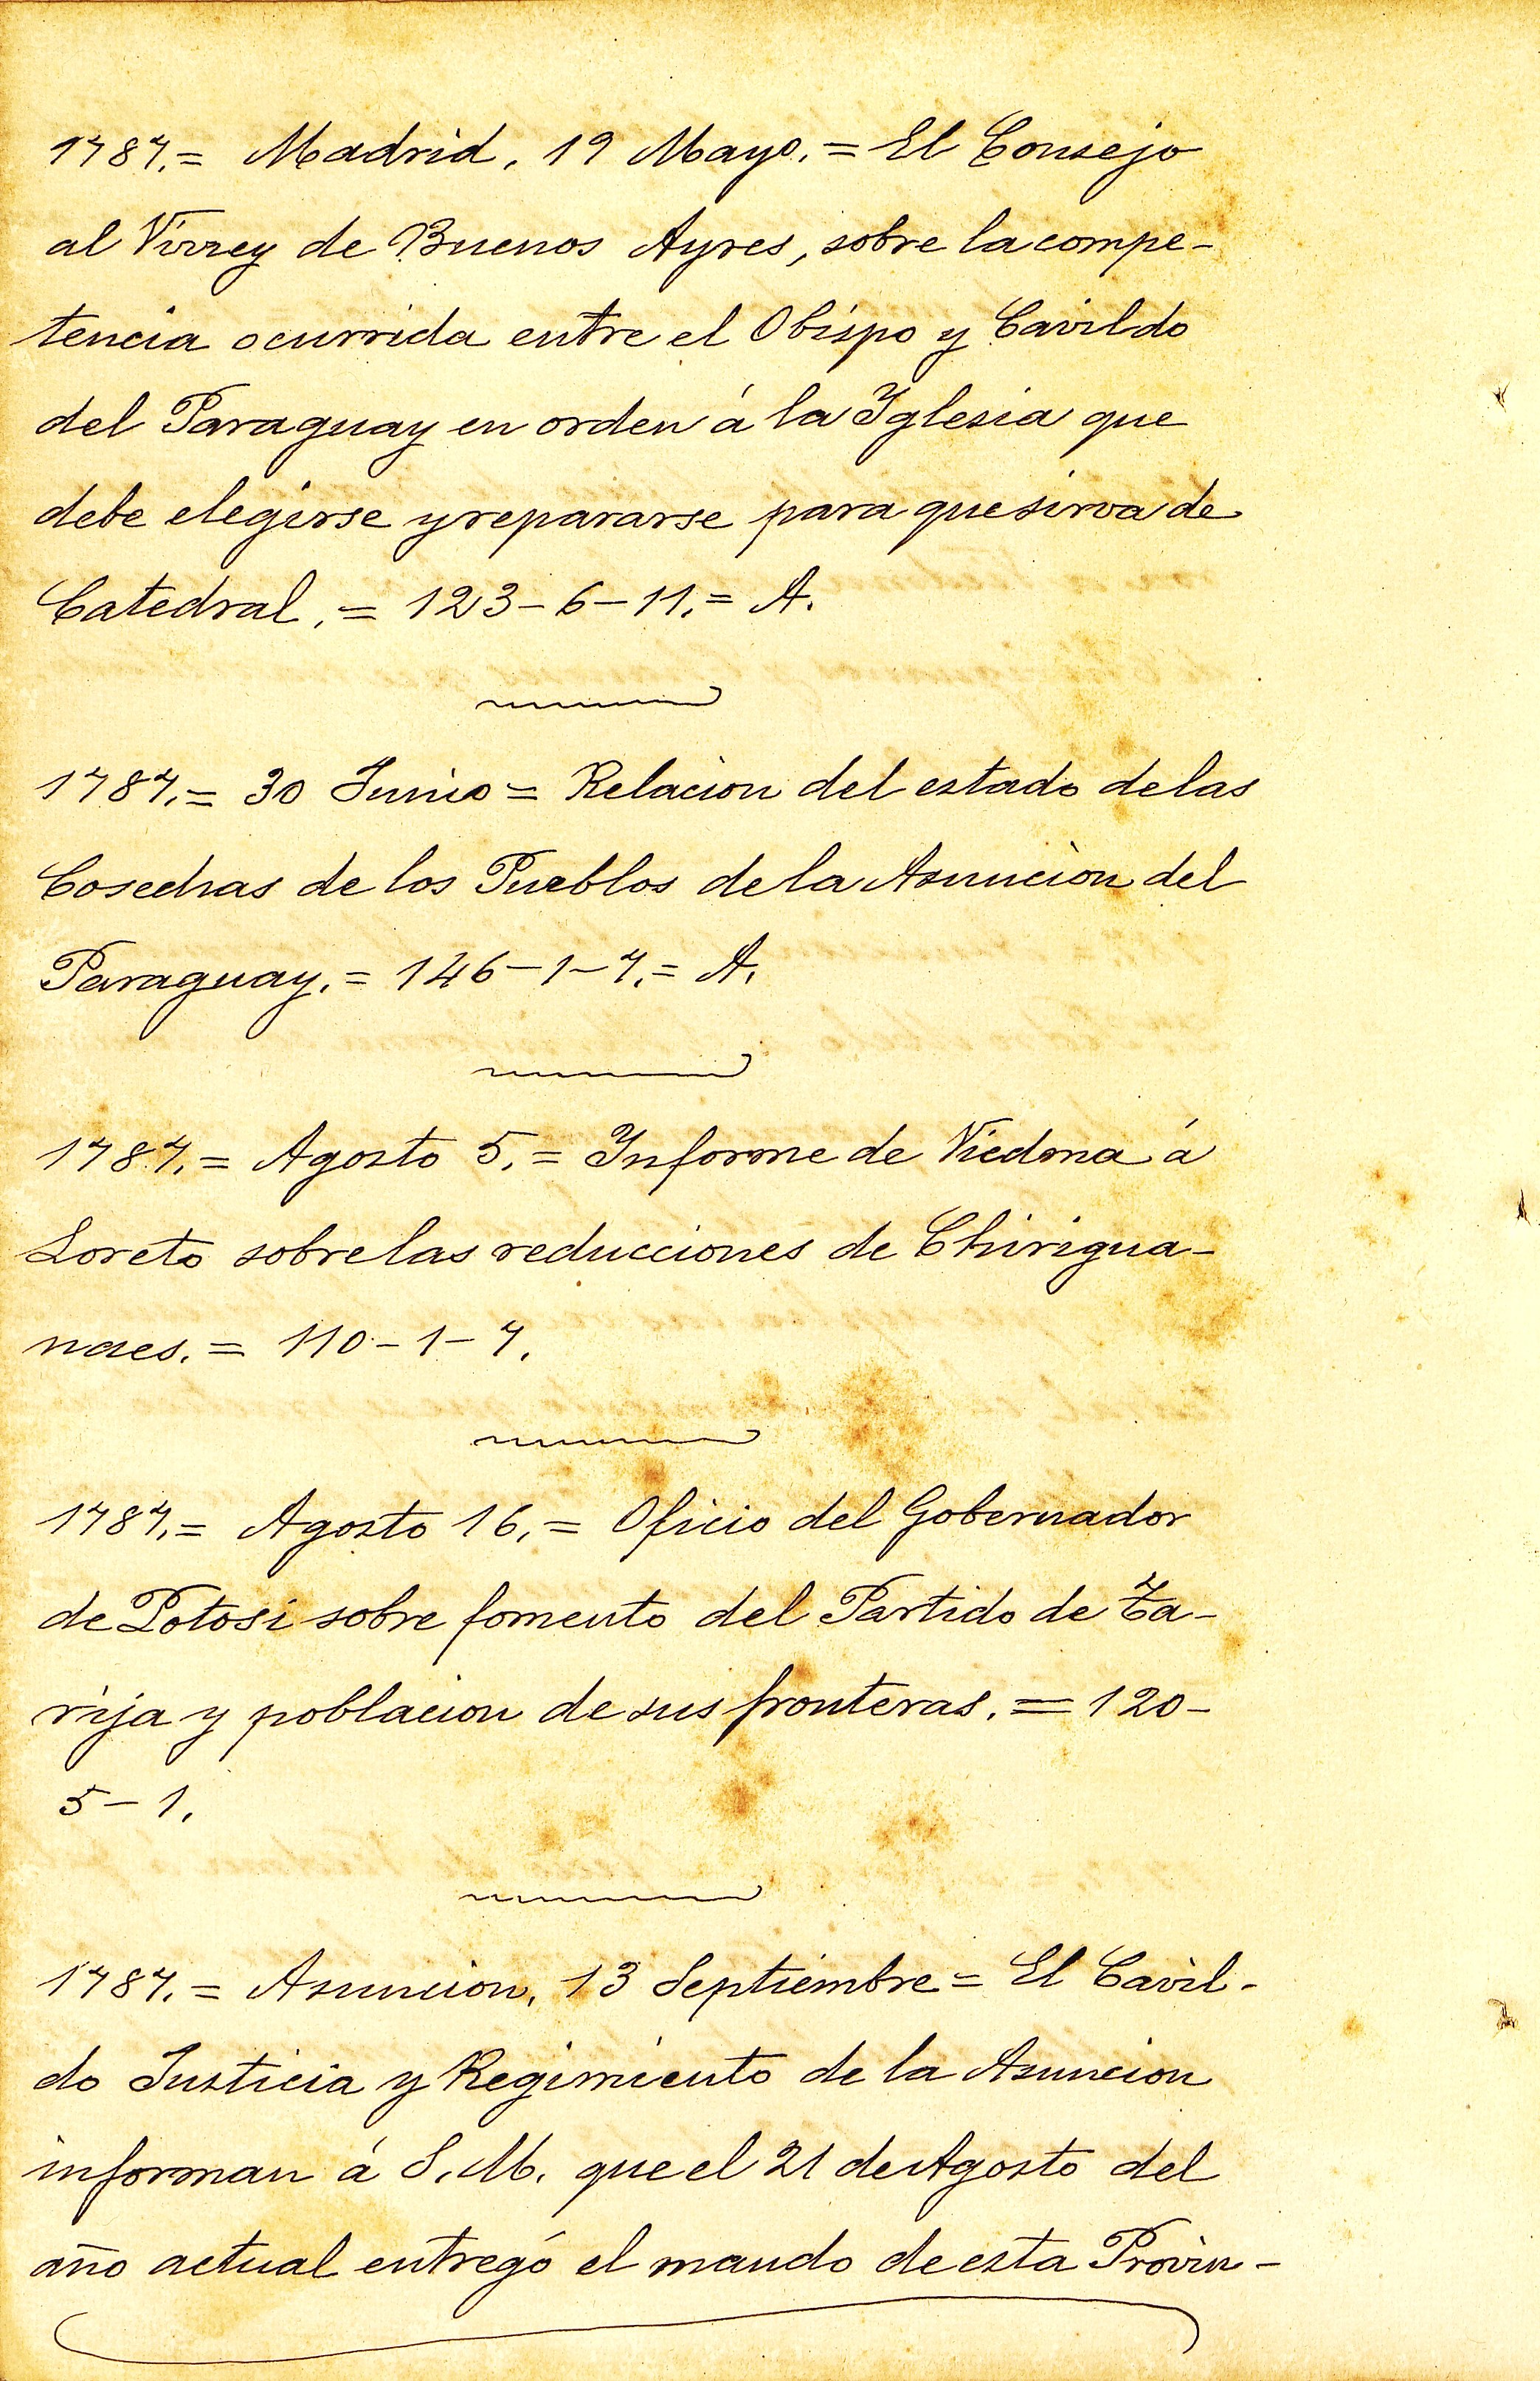 1787.= Madrid. 19 Mayo.= El Consejo
al Virrey de Buenos Ayres, sobre la compe-
tencia ocurrida entre el Obispo y Cavildo
del Paraguay en orden á la Iglesia que
debe elegirse y repararse para que sirva de
Catedral.= 123-6-11.= A.
1787.= 30 Junio= Relacion del estado de las
Cosechas de los Pueblos de la Asuncion del
Paraguay.= 146-1-7.= A.
1787.= Agosto 5.= Informe de Viedma á
Loreto sobre las reducciones de Chirigua-
naes.= 110-1-7.
1787.= Agosto 16.= Oficio del Gobernador
de Potosi sobre fomento del Partido de Ta-
rija y poblacion de sus fronteras.= 120-
5-1.
1787.= Asuncion. 13 Septiembre= El Cavil-
do Justicia y Regimiento de la Asuncion
informan á S. M. que el 21 de Agosto del
año actual entregó el mando de esta Provin-